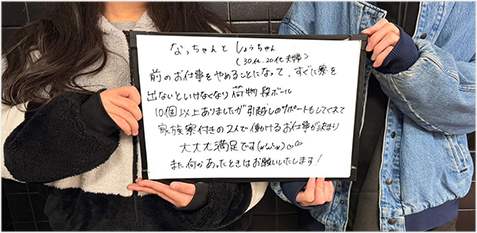 なっちゃんと しょうちゃん
(30代、20代夫婦)
前のお仕事をやめることになって、すぐに寮を
出ないといけなくなり荷物段ボール
10個以上ありましたが引越しのサポートもしてくれて
家族寮付きの2人で働けるお仕事が決まり
大大大満足です(*^^*)
また何かあったときはお願いいたします!